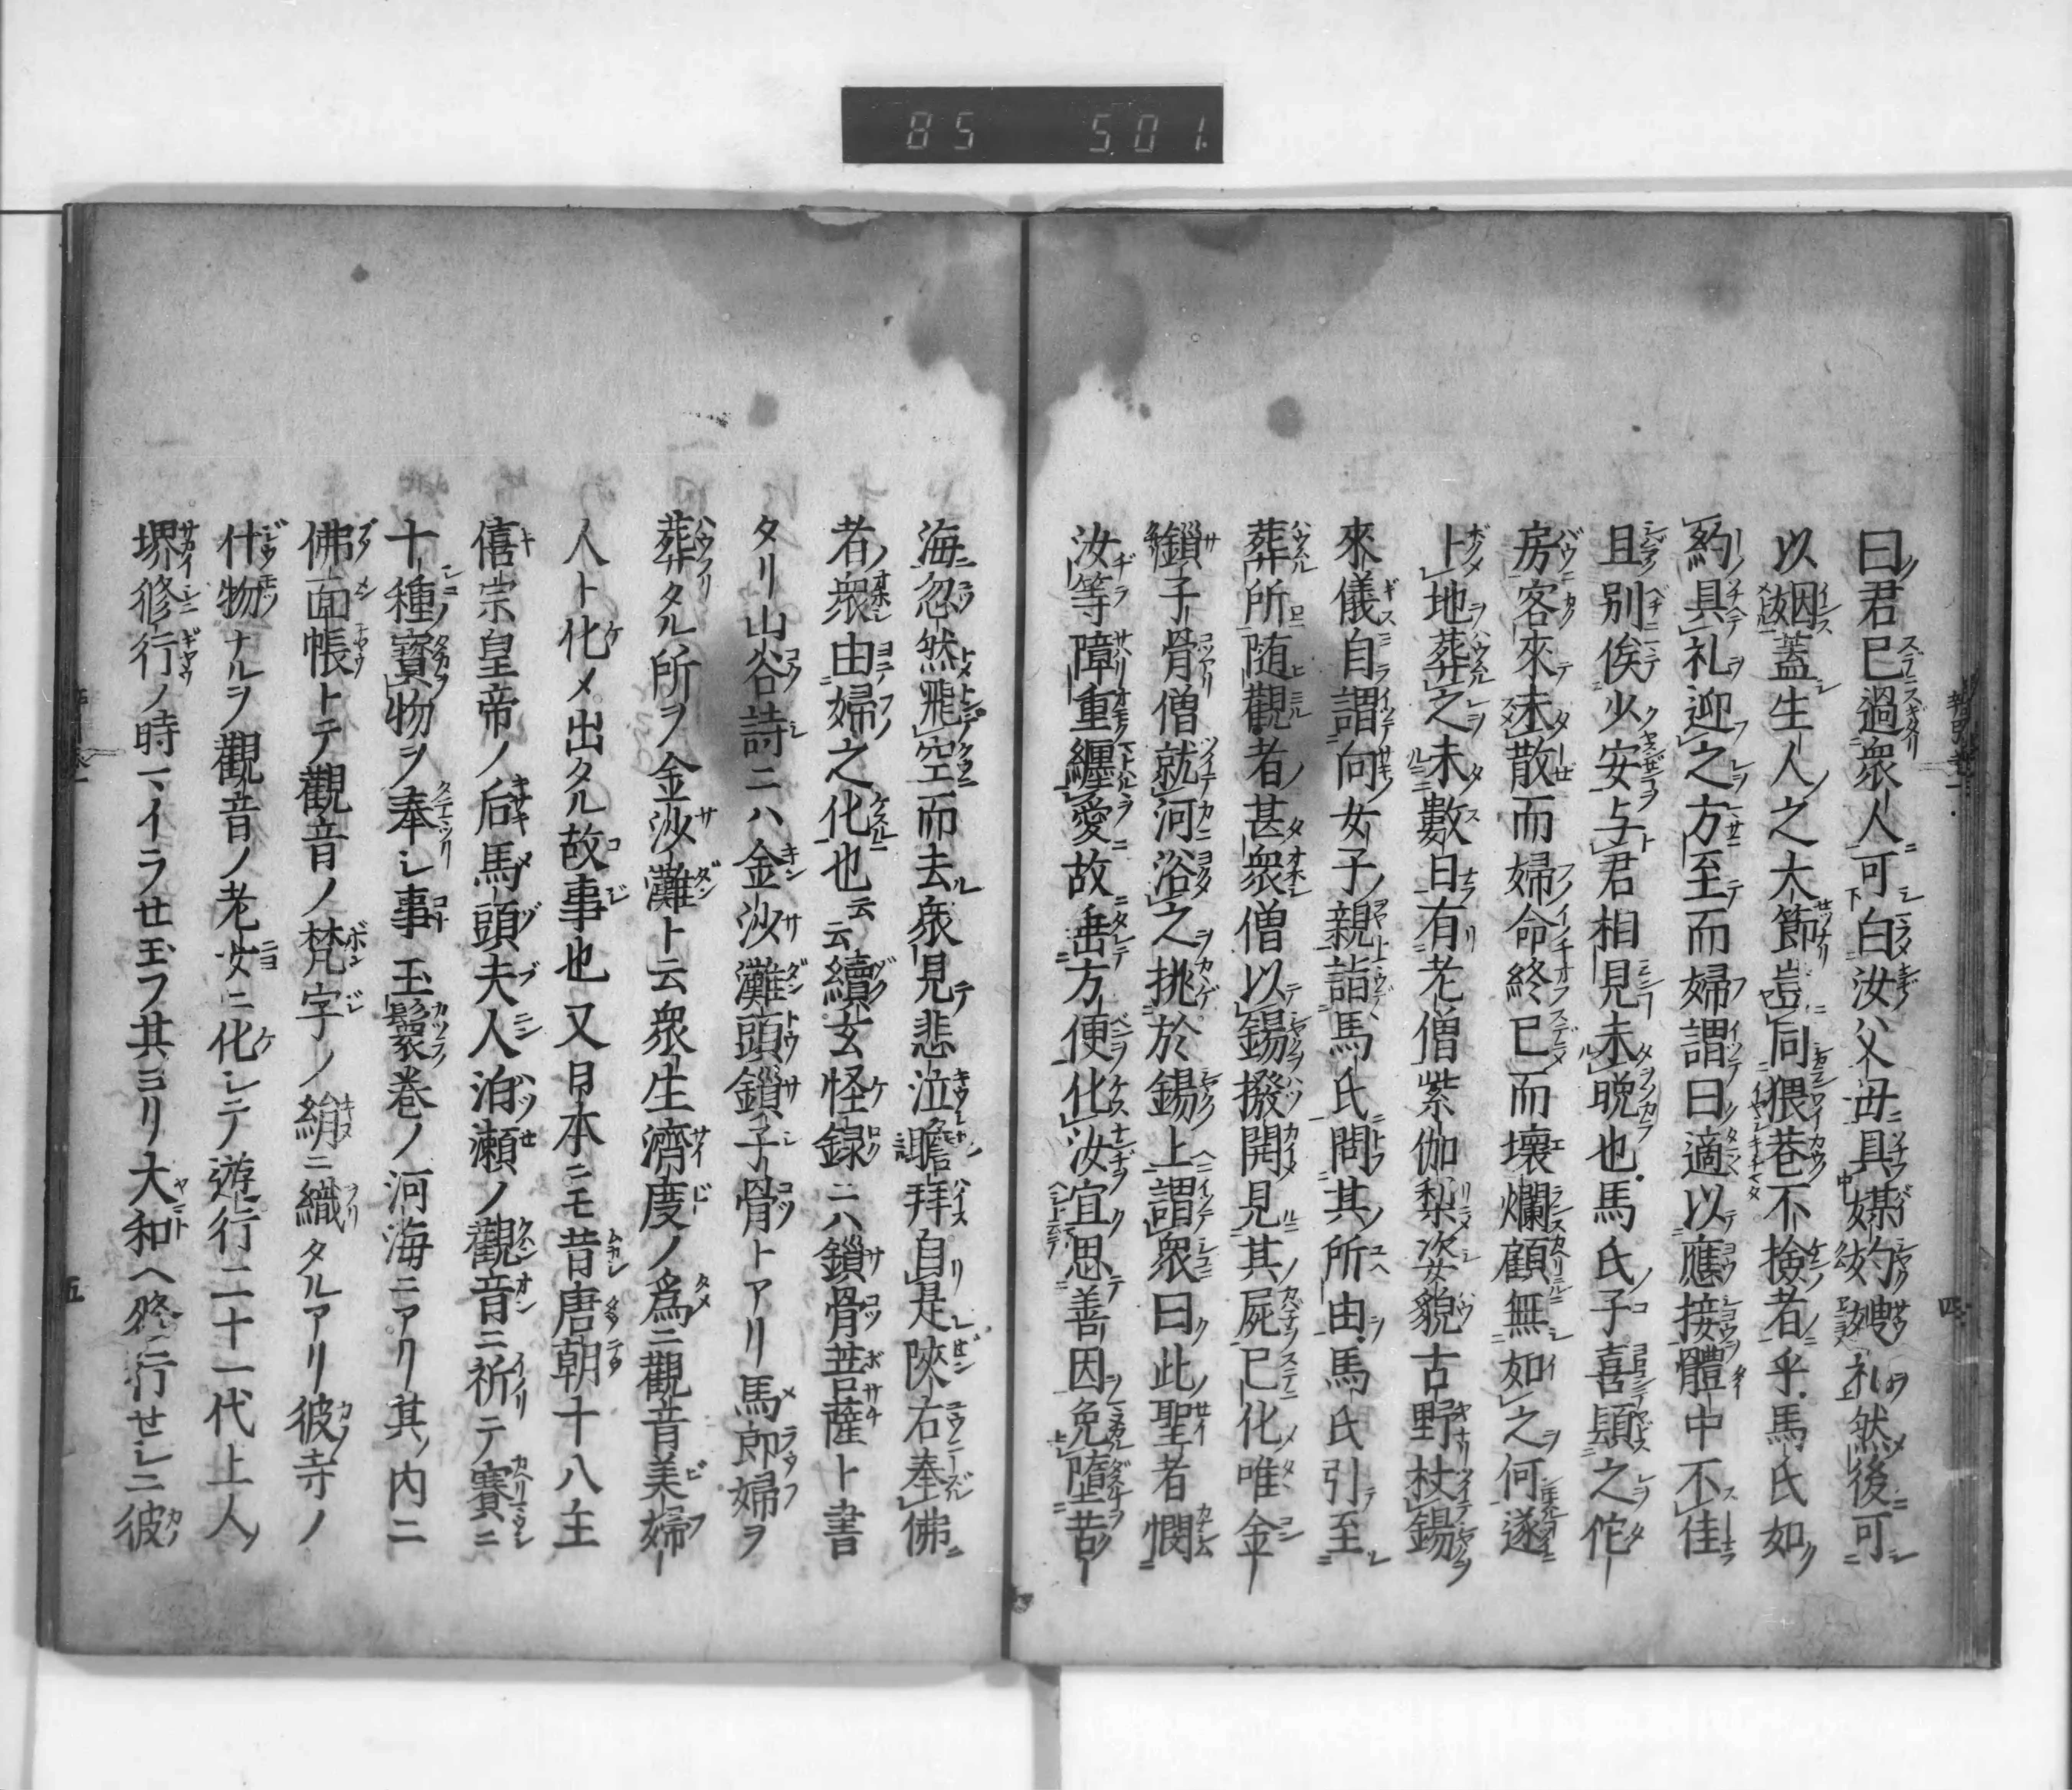 85 501
曰君已過衆人可白汝父母具媒妁娉礼然後可
以姻蓋生人之大節豈同猥巷不檢者乎馬氏如
約具礼迎之方至而婦謂曰適以應接體中不佳
且別俟少安与君相見未晩也馬氏子喜頣之佗
房客來未散而婦命終已而壞爛顧無如之何遂
卜地葬之未數日有老僧紫伽梨姿貌古野杖錫
來儀自謂向女子親詣馬氏問其所由馬氏引至
葬所随觀者甚衆僧以錫撥開見其屍已化唯金
鎖子骨僧就河浴之挑於錫上謂衆曰此聖者憫
汝等障重纏愛故垂方便化汝宜思善因免墮苦
海忽然飛空而去衆見悲泣瞻拜自是陝右奉佛
者衆由婦之化也云云續玄怪録ニハ鎖骨菩薩ト書
タリ山谷詩ニハ金沙灘頭鎖子骨トアリ馬郎婦ヲ
葬タル所ヲ金沙灘ト云衆生濟度ノ爲ニ觀音美婦
人ト化メ出タル故事也又日本ニモ昔唐朝十八主
僖宗皇帝ノ后馬頭夫人泊瀬ノ觀音ニ祈テ賽ニ
十種寶物ヲ奉レ事玉鬘巻ノ河海ニアリ其ノ内ニ
佛面帳トテ觀音ノ梵字ノ絹ニ織タルアリ彼寺ノ
什物ナルヲ觀音ノ老女ニ化シテ遊行二十一代上人
堺修行ノ時マイラせ玉フ其ヨリ大和ヘ修行せシニ彼
四
五